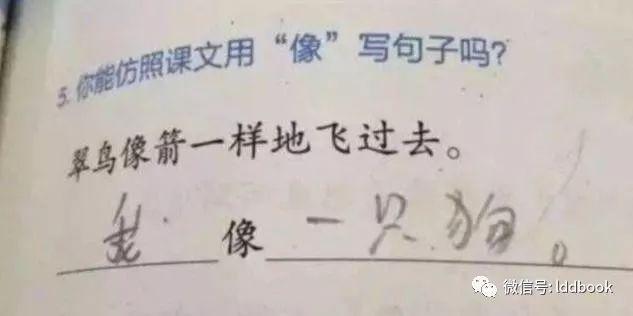 5. 你能仿照课文用“像”写句子吗?
翠鸟像箭一样地飞过去。
像一只狗。
微信号: lddbook